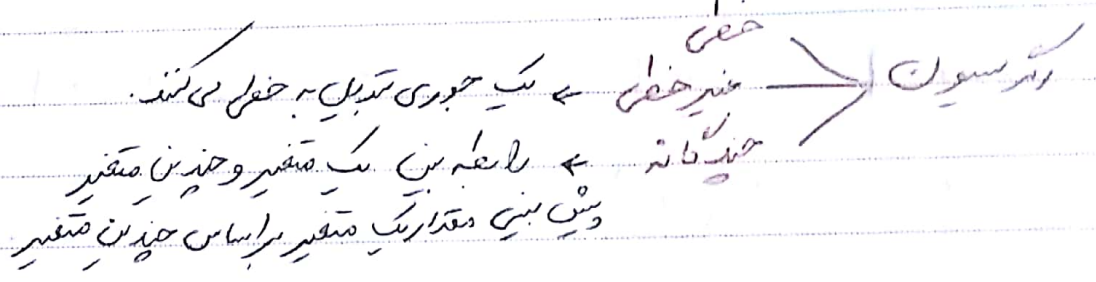 خطی
رگرسیون غیر خطی ← یک جوری تبدیل به خطی می کنند.
چندگانه ← رابطه بین یک متغیر و چندین متغیر
پیش بینی مقدار یک متغیر بر اساس چندین متغیر